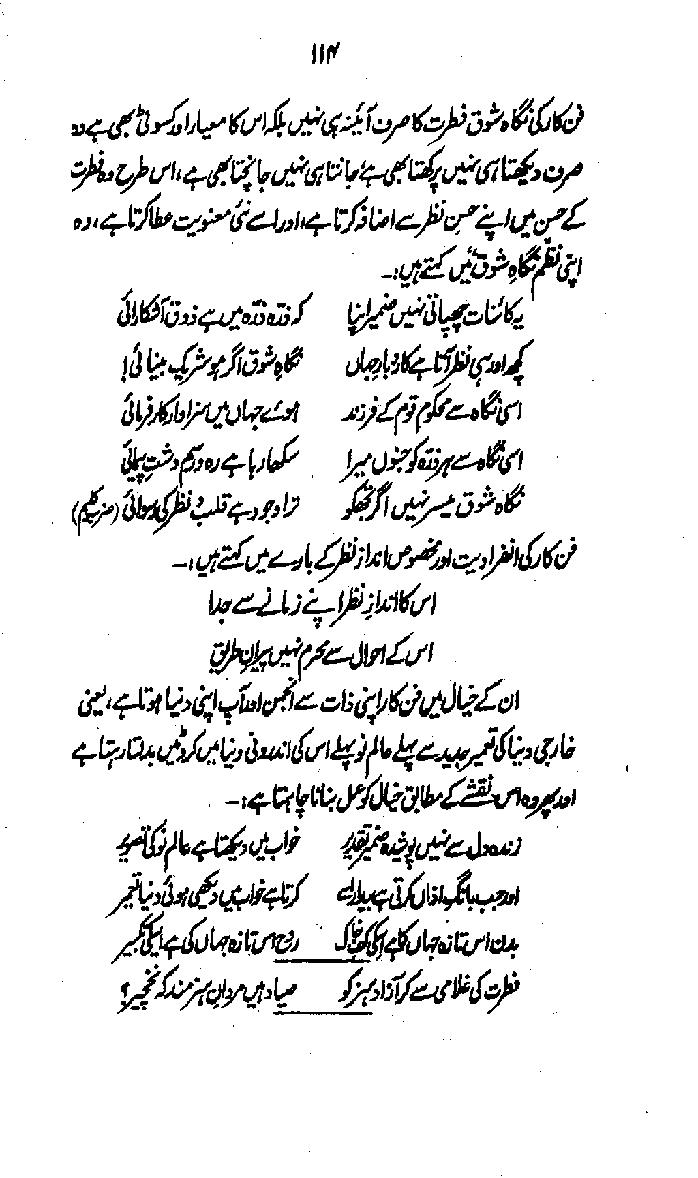 ۱۱۴
فن کار کی نگاہ شوق فطرت کا صرف آئینہ ہی نہیں بلکہ اس کا معیار اور کسوٹی بھی ہے وہ
صرف دیکھتا ہی نہیں پرکھتا بھی ہے، جانتا ہی نہیں جانچتا بھی ہے، اس طرح وہ فطرت
کے حسن میں اپنے حسن نظر سے اضافہ کرتا ہے، اور اسے نئی معنویت عطا کرتا ہے، وہ
اپنی نظم "نگاہِ شوق" میں کہتے ہیں:۔
یہ کائنات چھپاتی نہیں ضمیر اپنا کہ ذرہ ذرہ میں ہے ذوق آشکارائی
کچھ اور ہی نظر آتا ہے کاروبارِ جہاں نگاہِ شوق اگر ہو شریکِ بینائی!
اسی نگاہ سے محکوم قوم کے فرزند ہوئے جہاں میں سزاوارِ کارفرمائی
اسی نگاہ سے ہر ذرہ کو جنوں میرا سکھا رہا ہے رہ و رسمِ دشت پیمائی
نگاہ شوق میسر نہیں اگر تجھکو ترا وجود ہے قلب و نظر کی رسوائی (ضرب کلیم)
فن کار کی انفرادیت اور مخصوص انداز نظر کے بارے میں کہتے ہیں:۔
اس کا اندازِ نظر اپنے زمانے سے جدا
اس کے احوال سے محرم نہیں پیرانِ طریق
ان کے خیال میں فن کار اپنی ذات سے انجمن اور آپ اپنی دنیا ہوتا ہے، یعنی
خارجی دنیا کی تعمیر جدید سے پہلے عالم نو پہلے اس کی اندرونی دنیا میں کروٹیں بدلتا رہتا ہے
اور پھر وہ اس نقشے کے مطابق خیال کو عمل بنانا چاہتا ہے:۔
زندہ دل سے نہیں پوشیدہ ضمیرِ تقدیر خواب میں دیکھتا ہے عالم نو کی تصویر
اور جب بانگِ اذاں کرتی ہے بیدار اسے کرتا ہے خواب میں دیکھی ہوئی دنیا تعمیر
بدن اس تازہ جہاں کا ہے اسکی کفِ خاک روح اس تازہ جہاں کی ہے اسکی تکبیر
فطرت کی غلامی سے کر آزاد ہنر کو صیاد ہیں مردانِ ہنرمند کہ نخچیر؟